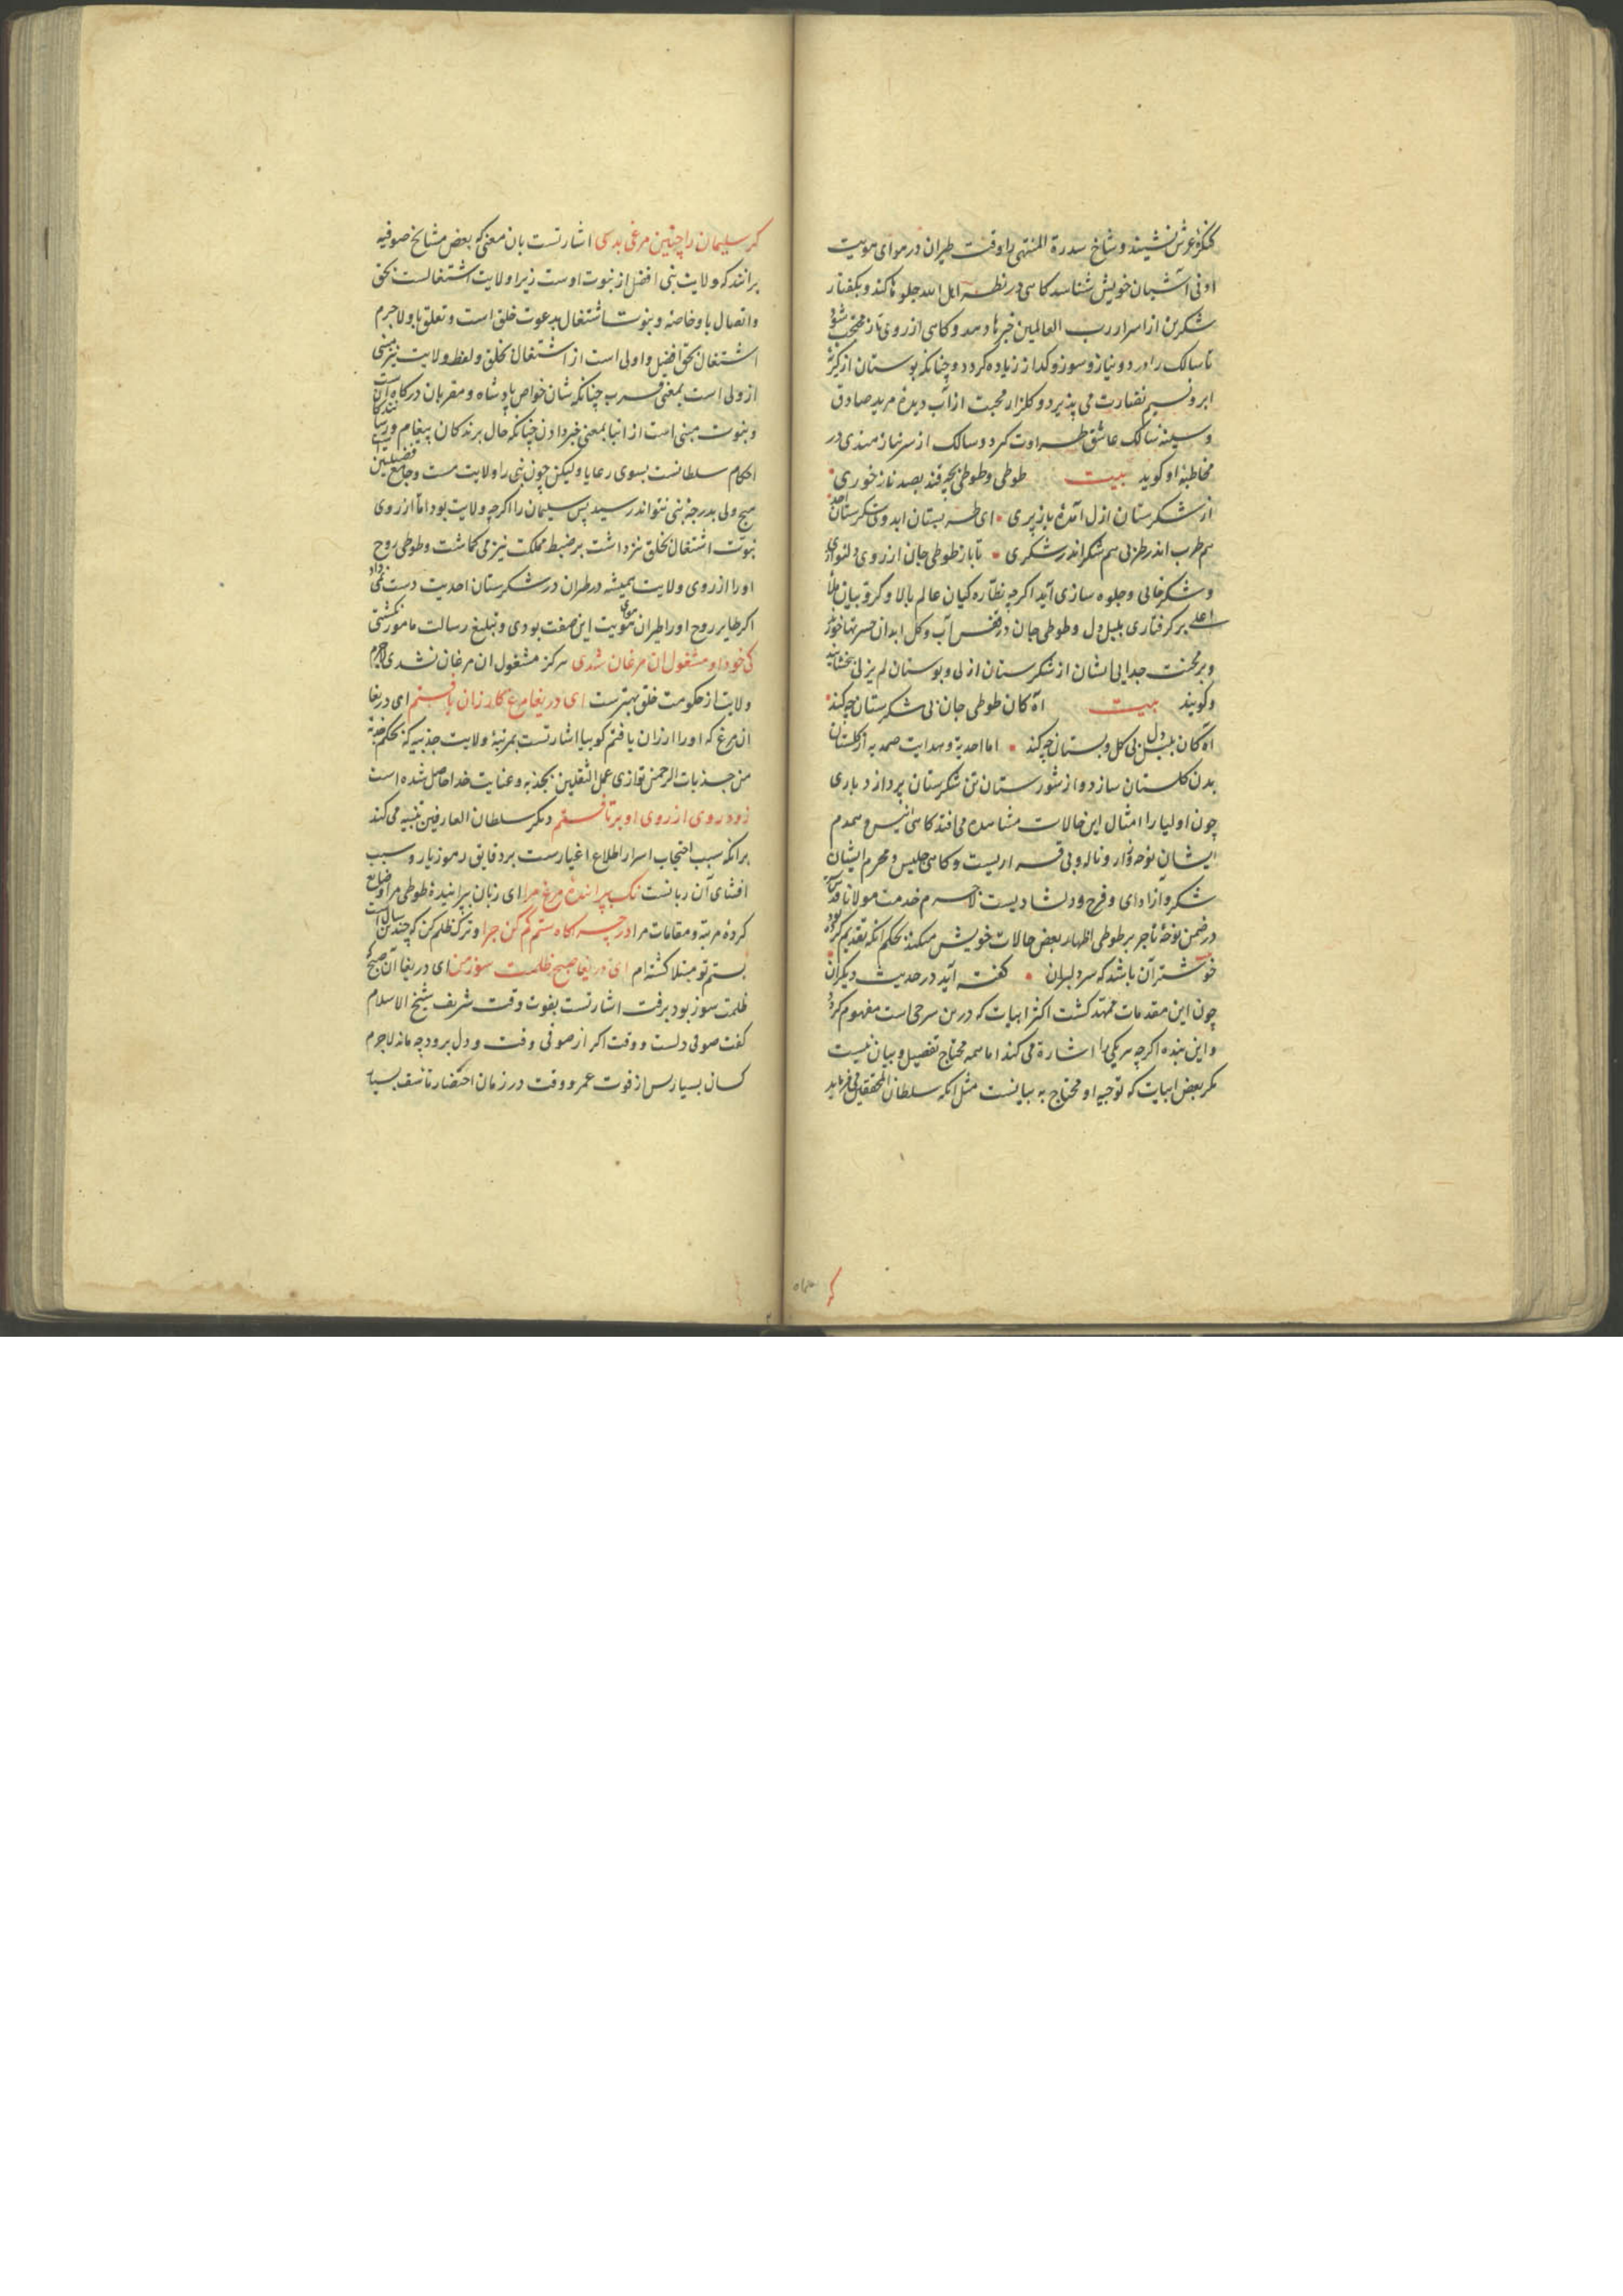 کنکرهٔ عرش نشیند و شاخ سدرة المنتهی را وقت طیران در هوای هویت
او نی آشیان خویش شناسد کاهی در نظر اهل الله جلوها کند و بکفتار
شکرین از اسرار رب العالمین خبرها دهد و کاهی از روی ناز محتجب شود
تا سالک را درد و نیاز و سوز و کداز زیاده کردد و چنانکه بوستان از کریهٔ
ابر و نسیم نضارت می پذیرد و کلزار محبت از آب دیدهٔ مرید صادق
و سینهٔ سالک عاشق طراوت کیرد و سالک از سر نیازمندی در
مخاطبهٔ او کوید بیت طوطی و طوطی بچه قند بصد ناز خوری
از شکرستان ازل آمدهٔ باز پری ای طربستان ابد وی شکرستان احد
هم طرب اندر طربی هم شکر اندر شکری تا باز طوطی جان از روی دلنوازی
و شکرخایی و جلوه سازی آید اکرچه نظاره کیان عالم بالا و کروبیان ملأ
اعلی بر کرفتاری بلبل دل و طوطی جان در قفس آب و کل ابدان حسرتها خورند
و بر محنت جدایی ایشان از شکرستان ازلی و بوستان لم یزلی بخشایند
و کویند بیت آه کان طوطی جان بی شکرستان چه کند
آه کان بلبل دل بی کل و بستان چه کند اما احدیة و هدایت صمدیه از کلستان
بدن کلستان سازد و از شورستان تن شکرستان پردازد باری
چون اولیا را امثال این حالات مشاهده می افتد کاهی انیس و همدم
ایشان نوحه و زار و ناله و بی قراریست و کاهی جلیس و محرم ایشان
شکر و آزادای و فرح و دلشادیست لاجرم خدمت مولانا قدس سره
در ضمن نوحهٔ تاجر بر طوطی اظهار بعض حالات خویش میکند بحکم آنکه تقدیم کرده بود
خوشتر آن باشد که سر دلبران کفته آید در حدیث دیکران
چون این مقدمات ممهد کشت اکثر ابیات که درین سرخی است مفهوم کردد
و این بنده اکرچه هر یکی را اشارة می کند اما همه محتاج تفصیل و بیان نیست
مکر بعض ابیات که توجیه او محتاج به بیانست مثل آنکه سلطان المحققین می فرماید
کر سلیمان را چنین مرغی بدی اشارتست بان معنی که بعض مشایخ صوفیه
برانند که ولایت نبی افضل از نبوت اوست زیرا ولایت اشتغالست بحق
و اتصال باو خاصه و نبوت اشتغال بدعوت خلق است و تعلق باو لاجرم
اشتغال بحق افضل و اولی است از اشتغال بخلق و لفظ ولایت نیز مبنی
از ولی است بمعنی قرب چنانکه شان خواص پادشاه و مقربان درکاه آنست
و نبوت مبنی است از انبا بمعنی خبر دادن چنانکه حال برندکان پیغام و رسانندکان
احکام سلطانست بسوی رعایا ولیکن چون نبی را ولایت هست و جامع فضیلتین
هیچ ولی بدرجهٔ نبی نتواند رسید پس سلیمان را اکرچه ولایت بود اما از روی
نبوت اشتغال بخلق نیز داشت بر ضبط مملکت نیز می کماشت و طوطی روح
او را از روی ولایت همیشه در طیران در شکرستان احدیت دست نمی داد
اکر طایر روح او را طیران هوای هویت این صفت بودی و تبلیغ رسالت مامور نکشتی
کی خود او مشغول ان مرغان شدی هرکز مشغول ان مرغان نشدی لاجرم
ولایت از حکومت خلق بهترست ای دریغا مرغ کارزان یافتم ای دریغا
ان مرغ که او را ارزان یافتم کوییا اشارتست بمرتبهٔ ولایت جذبیه که بحکم جذبة
من جذبات الرحمن توازی عمل الثقلین بجذبه و عنایت خدا حاصل شده است
زود روی از روی او برتافتم دیکر سلطان العارفین تنبیه می کند
برانکه سبب احتجاب اسرار اطلاع اغیارست بر دقایق رموز یار و سبب
افشای آن زبانست نک پرانندهٔ مرغ مرا ای زبان پرانیدهٔ طوطی مرا و ضایع
کردهٔ مرتبه و مقامات مرا در چراکاه ستم کم کن چرا و ترک ظلم کن که چندین سالست
بستم تو مبتلا کشته ام ای دریغا صبح ظلمت سوز من ای دریغا آن صبح
ظلمت سوز بود برفت اشارتست بفوت وقت شریف شیخ الاسلام
کفت صوفی دلست و وقت اکر از صوفی وقت و دل برود چه ماند لاجرم
کسان بسیار پس از فوت عمر و وقت در زمان احتضار تاسف بسیار
کر